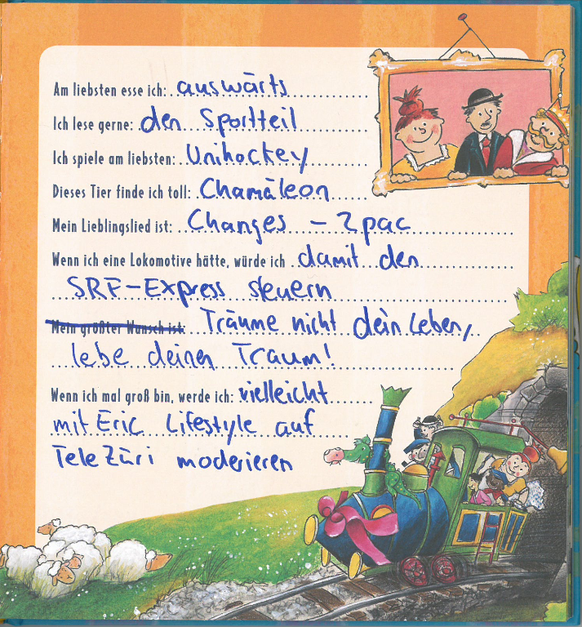 Am liebsten esse ich: auswärts
Ich lese gerne: den Sportteil
Ich spiele am liebsten: Unihockey
Dieses Tier finde ich toll: Chamäleon
Mein Lieblingslied ist: Changes - 2pac
Wenn ich eine Lokomotive hätte, würde ich damit den
SRF-Express steuern
Mein größter Wunsch ist: Träume nicht dein Leben,
lebe deinen Traum!
Wenn ich mal groß bin, werde ich: vielleicht
mit Eric Lifestyle auf
Tele Züri moderieren